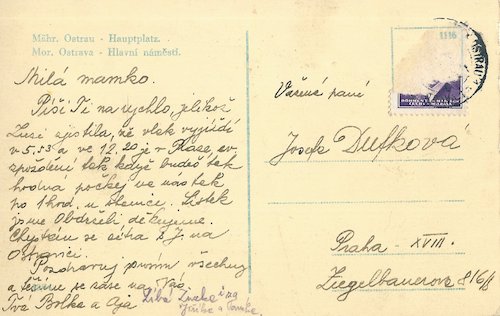 Mähr. Ostrau - Hauptplatz.
Mor. Ostrava - Hlavní náměstí.
1116
Milá mamko.
Píši Ti na rychlo, jelikož
zjistila, že vlak vyjíždí
v 5.53 a ve 12.20 je v Praze, ev.
zpoždění tak když budeš tak
hodná počkej na nás tak
po 1 hod. u Lístek
jsme obdrželi děkujeme.
Chystám se zítra na
Ostravici.
Pozdravuj prosím všechny
a těšíme se zase na Vás.
Tvá a
Vážená paní
Dufková
Praha - XVIII.
Ziegelbauerova 816/8